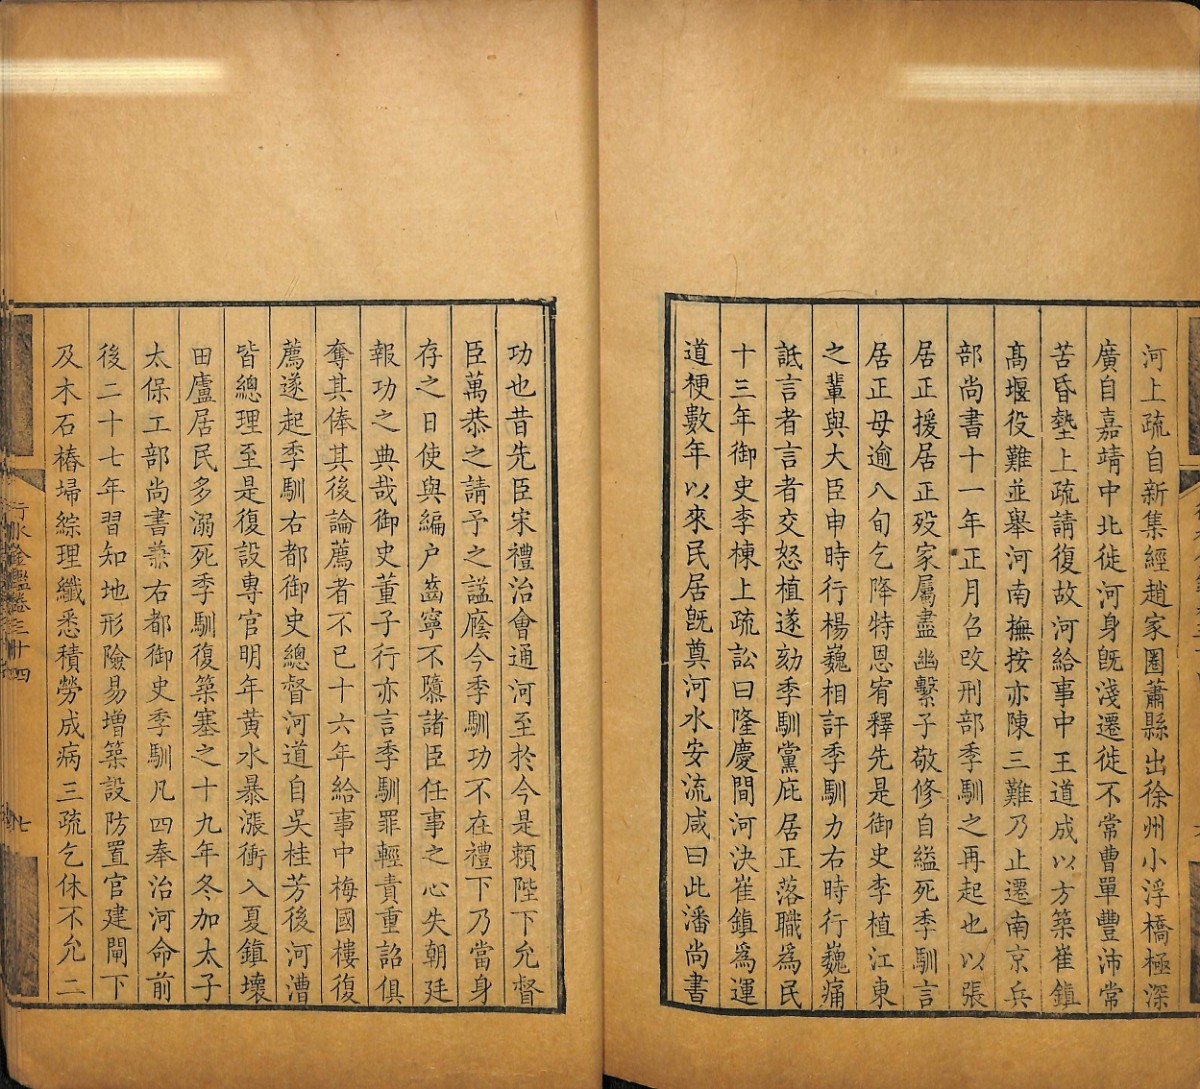 河上疏自新集經趙家圈蕭縣出徐州小浮橋極深
廣自嘉靖中北徙河身旣淺遷徙不常曹單豐沛常
苦昏墊上疏請復故河給事中王道成以方築崔鎮
髙堰役難並舉河南撫按亦陳三難乃止遷南京兵
部尚書十一年正月召改刑部季馴之再起也以張
居正援居正歿家屬盡幽繫子敬修自縊死季馴言
居正母逾八旬乞降特恩宥釋先是御史李植江東
之輩與大臣申時行楊巍相訐季馴力右時行巍痛
詆言者言者交怒植遂劾季馴黨庇居正落職爲民
十三年御史李棟上疏訟曰隆慶間河決崔鎮爲運
道梗數年以來民居旣奠河水安流咸曰此潘尚書
功也昔先臣宋禮治會通河至於今是賴陛下允督
臣萬恭之請予之諡廕今季馴功不在禮下乃當身
存之日使與編户齒寧不隳諸臣任事之心失朝廷
報功之典哉御史董子行亦言季馴罪輕責重詔俱
奪其俸其後論薦者不已十六年給事中梅國樓復
薦遂起季馴右都御史總督河道自吳桂芳後河漕
皆總理至是復設專官明年黄水暴漲衝入夏鎮壞
田廬居民多溺死季馴復築塞之十九年冬加太子
太保工部尚書兼右都御史季馴凡四奉治河命前
後二十七年習知地形險易增築設防置官建閘下
及木石樁埽綜理纖悉積勞成病三疏乞休不允二
行水金鑑卷三十四
七